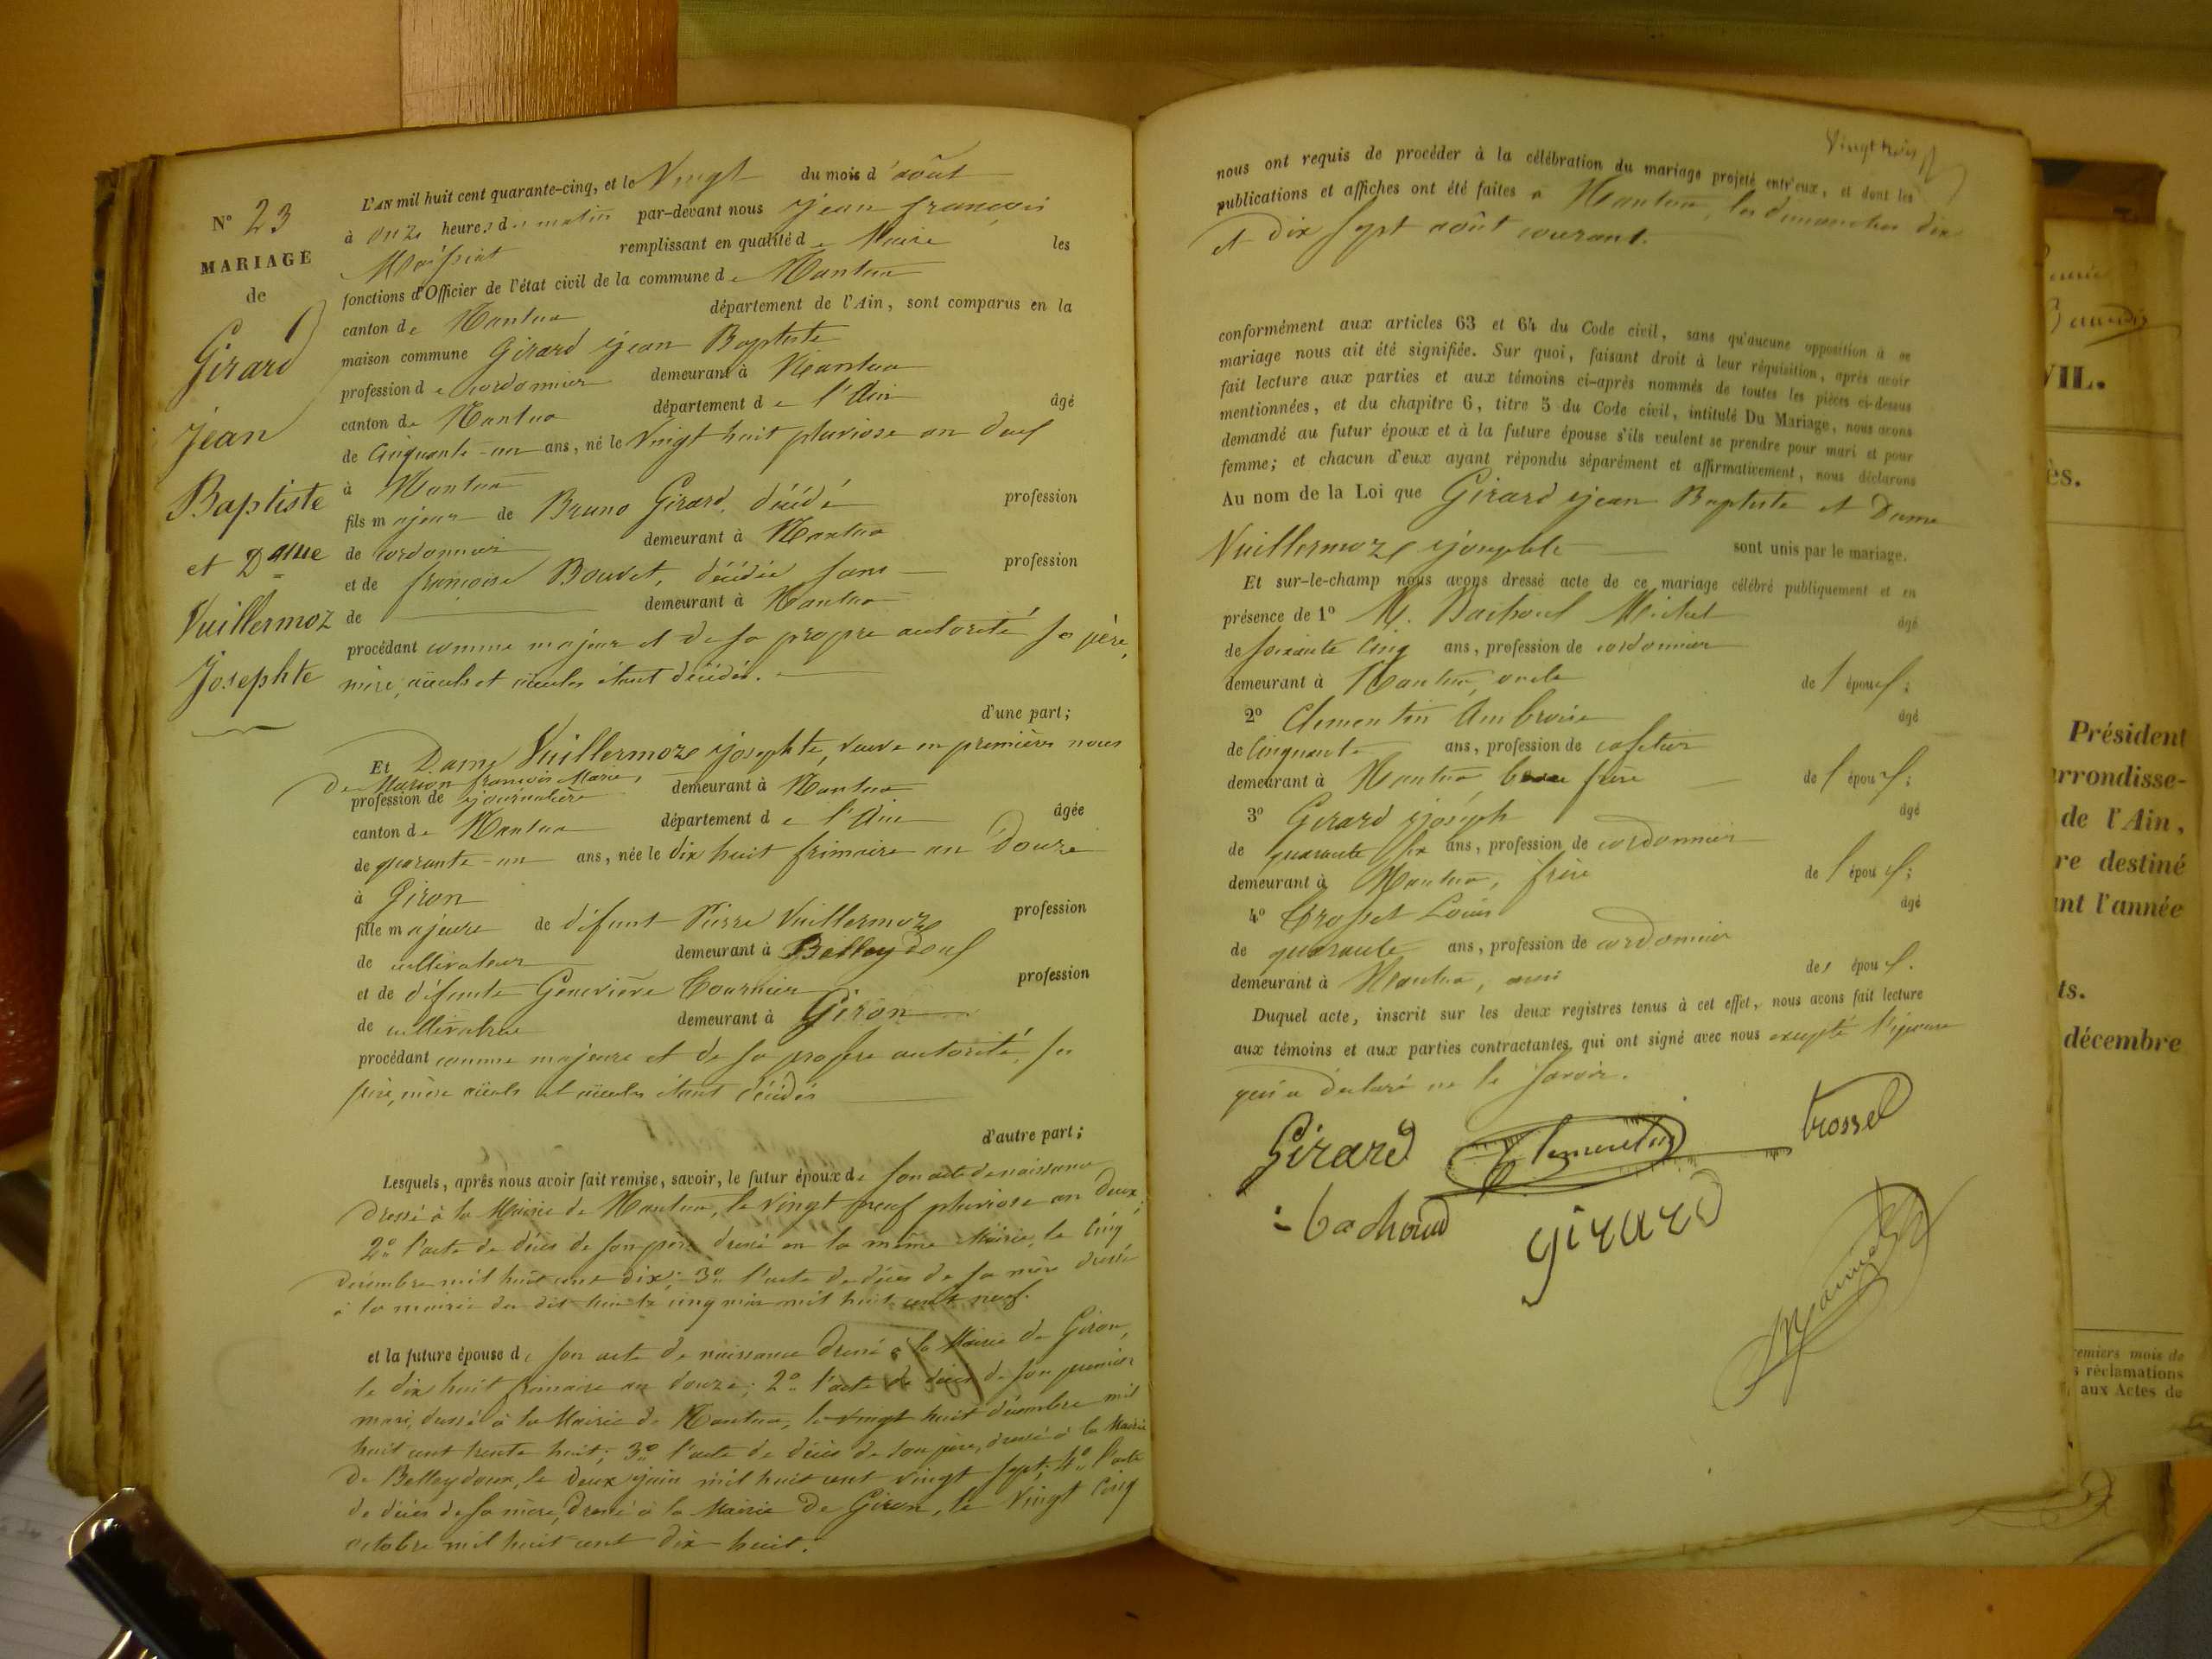 N° 23
MARIAGE
de
Girard
Jean
Baptiste
et Dame
Vuillermoz
Josephte
L'AN mil huit cent quarante-cinq, et le Vingt du mois d'août
à onze heures du matin par-devant nous Jean françois
remplissant en qualité de Maire les
fonctions d'Officier de l'état civil de la commune de Nantua
canton de Nantua département de l'Ain, sont comparus en la
maison commune Girard Jean Baptiste
profession de cordonnier demeurant à Nantua
canton de Nantua département de l'Ain âgé
de Cinquante-un ans, né le Vingt huit pluviose an deux
à Nantua
fils majeur de Bruno Girard, décédé profession
de cordonnier demeurant à Nantua
et de françoise Bouvet, décédée sans profession
de demeurant à Nantua
procédant comme majeur et de sa propre autorité ses père,
mère, aïeuls et aïeules étant décédés.
d'une part;
Et Dame Vuillermoz Josephte, veuve en premières noces
De Marion françois Marie,
profession de journalière demeurant à Nantua
canton de Nantua département de l'Ain âgée
de quarante-un ans, née le dix huit frimaire an Douze
à Giron
fille majeure de défunt Pierre Vuillermoz profession
de cultivateur demeurant à Belleydoux
et de défunte Geneviève Tournier profession
de cultivatrice demeurant à Giron
procédant comme majeure et de sa propre autorité, ses
père, mère aïeuls et aïeules étant décédés
d'autre part;
Lesquels, après nous avoir fait remise, savoir, le futur époux de son acte de naissance
dressé à la Mairie de Nantua, le Vingt neuf pluviose an Deux;
2° l'acte de décès de son père dressé en la même Mairie, le Cinq
décembre mil huit cent dix; 3° l'acte de décès de sa mère dressé
à la mairie du dit lieu le cinq mai mil huit cent neuf.
et la future épouse de son acte de naissance dressé à la Mairie de Giron,
le dix huit frimaire an douze; 2° l'acte de décès de son premier
mari, dressé à la Mairie de Nantua, le vingt huit décembre mil
huit cent trente huit; 3° l'acte de décès de son père, dressé à la Mairie
de Belleydoux, le deux juin mil huit cent vingt sept; 4° l'acte
de décès de sa mère, dressé à la Mairie de Giron, le Vingt Cinq
octobre mil huit cent dix huit.
Vingt trois
nous ont requis de procéder à la célébration du mariage projeté entr'eux, et dont les
publications et affiches ont été faites à Nantua, les dimanches dix
et dix sept août courant.
conformément aux articles 63 et 64 du Code civil, sans qu'aucune opposition à ce
mariage nous ait été signifiée. Sur quoi, faisant droit à leur réquisition, après avoir
fait lecture aux parties et aux témoins ci-après nommés de toutes les pièces ci-dessus
mentionnées, et du chapitre 6, titre 5 du Code civil, intitulé Du Mariage, nous avons
demandé au futur époux et à la future épouse s'ils veulent se prendre pour mari et pour
femme; et chacun d'eux ayant répondu séparément et affirmativement, nous déclarons
Au nom de la Loi que Girard Jean Baptiste et Dame
Vuillermoz Josephte sont unis par le mariage.
Et sur-le-champ nous avons dressé acte de ce mariage célébré publiquement et en
présence de 1° M. Bachoud Michel âgé
de soixante Cinq ans, profession de cordonnier
demeurant à Nantua, oncle de l'époux;
2° Clementin Ambroise âgé
de Cinquante ans, profession de cafetier
demeurant à Nantua, beau frère de l'époux;
3° Girard Joseph âgé
de quarante six ans, profession de cordonnier
demeurant à Nantua, frère de l'époux;
4° Trosset Louis âgé
de quarante ans, profession de cordonnier
demeurant à Nantua, ami des époux.
Duquel acte, inscrit sur les deux registres tenus à cet effet, nous avons fait lecture
aux témoins et aux parties contractantes, qui ont signé avec nous excepté l'épouse
qui a déclaré ne le savoir.
Girard Clementin trosset
bachoud girard
VIL.
ès.
Président
arrondisse-
de l'Ain,
re destiné
nt l'année
ts.
décembre
remiers mois de
s réclamations
aux Actes de